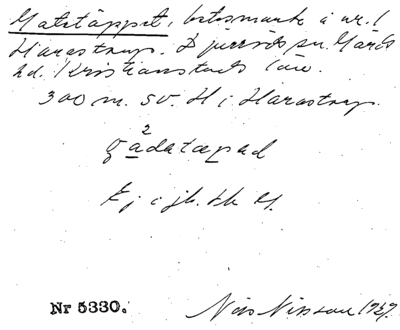 Gatetäppet, betesmark å nr. 1
Harastorp. Djurröds sn. Gärds
hd. Kristianstads län.
300 m. SV. H i Harastorp.
gadatæpad
Ej i jb. Ek K.
Nr 5330.
Nils Nilsson 1937.